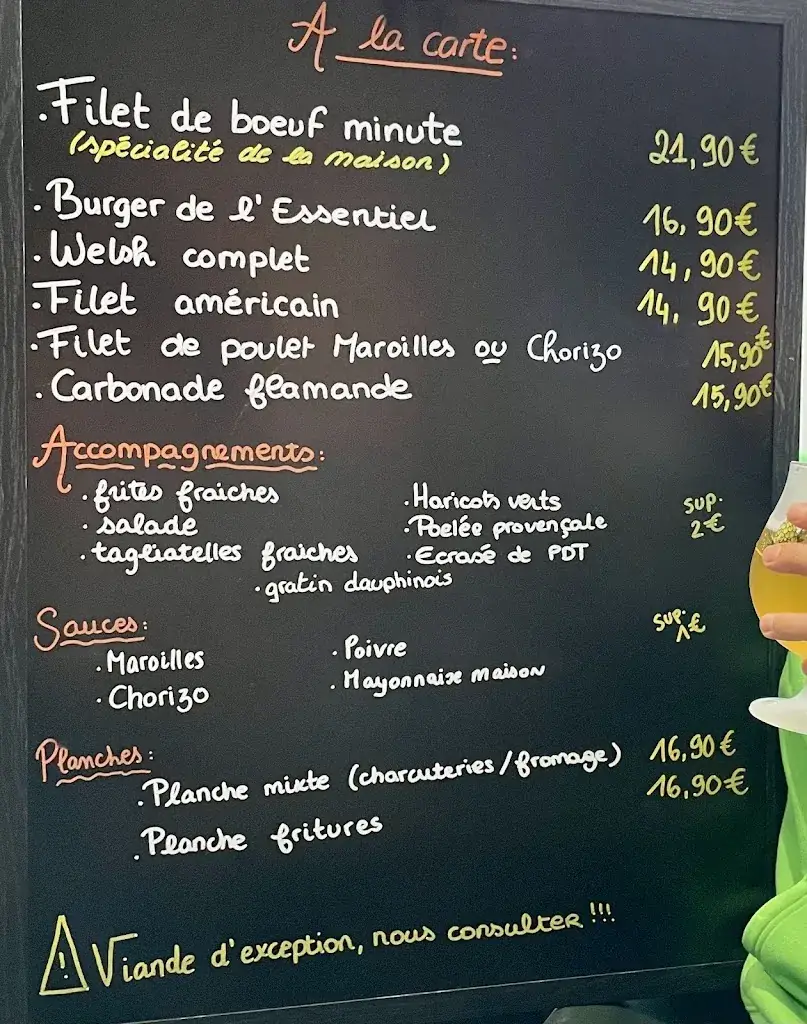 A la carte:
. Filet de boeuf minute
(spécialité de la maison) 21,90€
. Burger de l'Essentiel 16,90€
. Welsh complet 14,90€
. Filet américain 14,90€
. Filet de poulet Maroilles ou Chorizo 15,90€
. Carbonade flamande 15,90€
Accompagnements:
. frites fraiches . Haricots verts sup.
. salade . Poelée provençale 2€
. tagliatelles fraiches . Ecrasé de PDT
. gratin dauphinois
Sauces: sup. 1€
. Maroilles . Poivre
. Chorizo . Mayonnaise maison
Planches:
. Planche mixte (charcuteries/fromage) 16,90€
. Planche fritures 16,90€
! Viande d'exception, nous consulter !!!